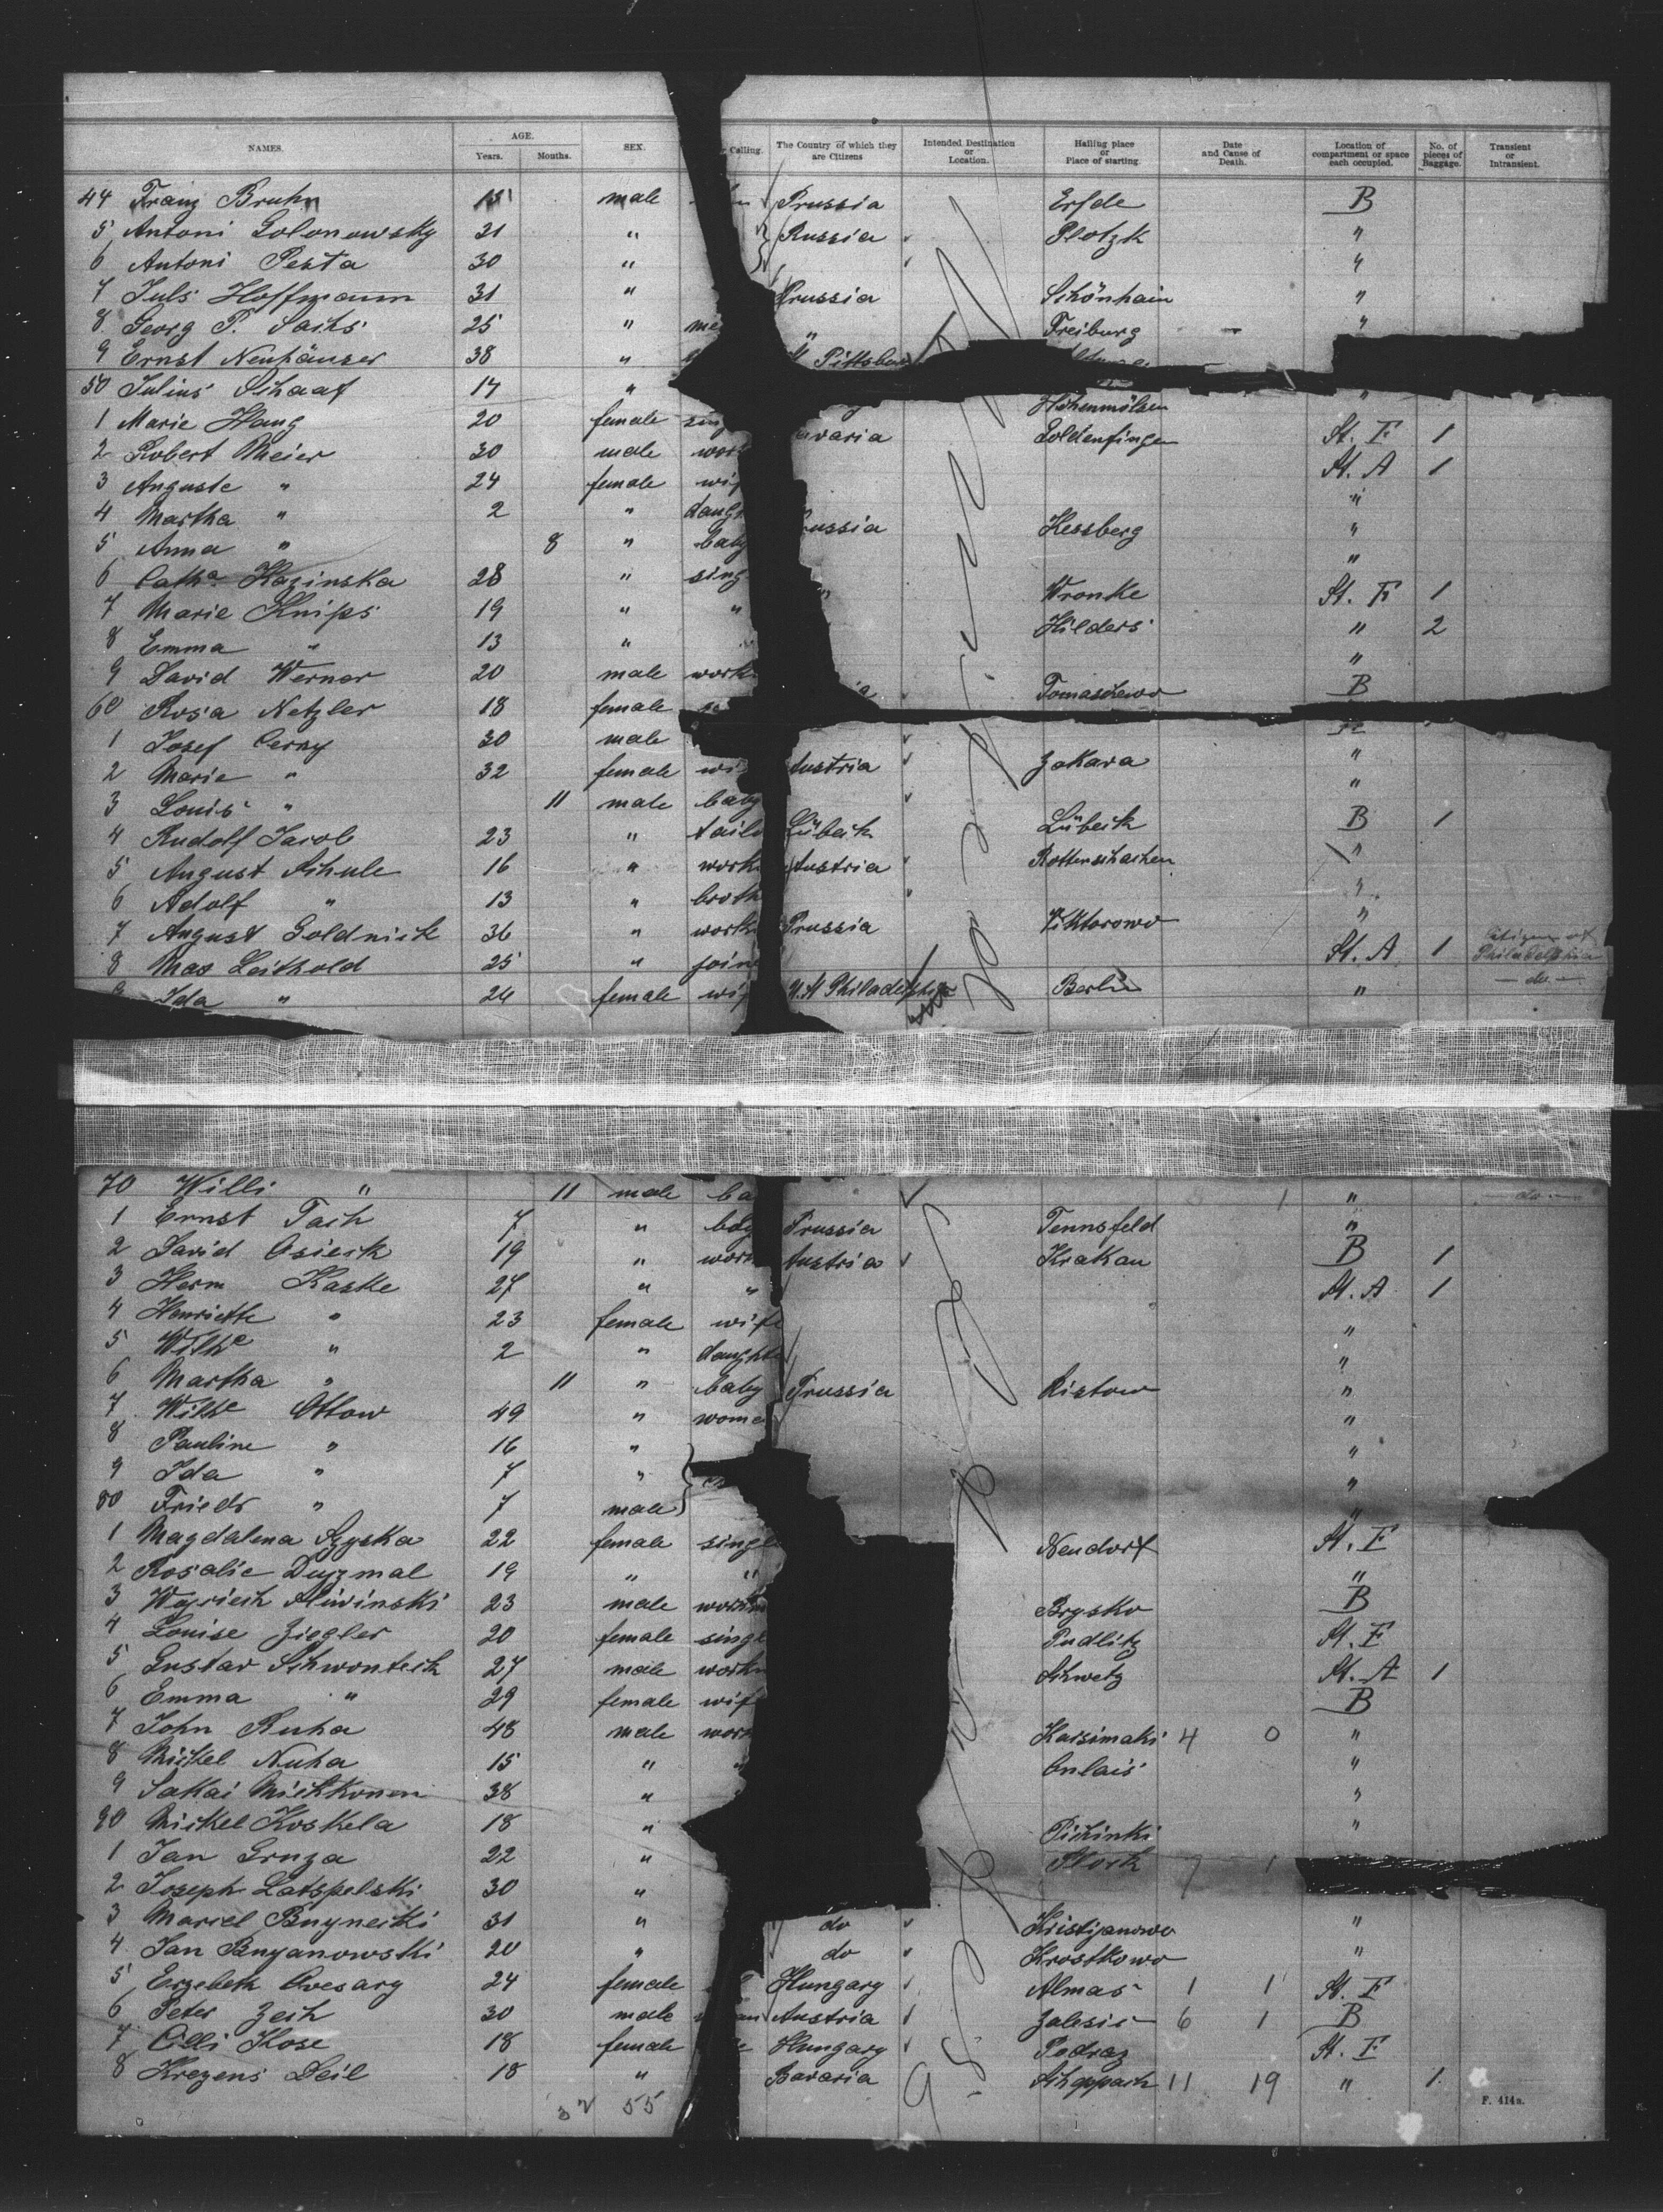 NAMES. AGE. Years. Months. SEX. Calling. The Country of which they are Citizens Intended Destination or Location. Hailing place or Place of starting. Date and Cause of Death. Location of compartment or space each occupied. No. of pieces of Baggage. Transient or Intransient.
44 Franz Bruhn 15 male Prussia Erfde B
5 Antoni Golonowsky 21 " Russia Plotzk "
6 Antoni Pesta 30 " "
7 Juls Hoffmann 31 " Prussia Schönhain "
8 Georg P. Sachs 25 " me " Freiburg "
9 Ernst Neuhäuser 38 " Pittsbur
50 Julius Schaaf 17 " Hohenmölsen "
1 Marie Haug 20 female sing avaria Goldenfingen St. F 1
2 Robert Meier 30 male work St. A 1
3 Auguste " 24 female wif "
4 Martha " 2 " daugh russia Kessberg "
5 Anna " 8 " baby "
6 Cath.a Kazinska 28 " sing " Wronke St. F 1
7 Marie Knips 19 " " Hilders " 2
8 Emma " 13 " "
9 David Werner 20 male work Tomaschewo B
60 Rosa Netzler 18 female
1 Josef Cerny 30 male "
2 Marie " 32 female wi Austria Zakava "
3 Louis " 11 male baby
4 Rudolf Jacob 23 " tailo Lübeck Lübeck B 1
5 August Schule 16 " work Austria Rottenschachen "
6 Adolf " 13 " broth "
7 August Goldnick 36 " work Prussia Viktorowo "
8 Max Leithold 25 " join St. A 1 Citizen of Philadelphia
9 Ida " 24 female wif Philadelphia Berlin " do
70 Willi " 11 male ba " do
1 Ernst Tach 7 " boy Prussia Tennsfeld "
2 David Osieck 19 " work Austria Krakau B 1
3 Herm Kaske 27 " " St. A 1
4 Henriette " 23 female wife "
5 Wilhe " 2 " daughte "
6 Martha " 11 " baby Prussia Ristow "
7 Wilhe Ottow 49 " woma "
8 Pauline " 16 " "
9 Ida " 7 " "
80 Friedr " 7 male "
1 Magdalena Szyska 22 female single Neudorf St. F
2 Rosalie Duszmal 19 " " "
3 Woyciech Sliwinski 23 male workm Brysko B
4 Louise Ziegler 20 female singl Pudlitz St. F
5 Gustav Schwonteck 27 male workm Schwetz St. A 1
6 Emma " 29 female wif B
7 John Ruha 48 male work Kaisimaki 4 0 "
8 Michel Nuha 15 " " Onlais "
9 Sakai Michkonen 38 " "
90 Michel Koskela 18 " Pichinki "
1 Jan Gruza 22 " Plock 7 1
2 Joseph Latspelski 30 "
3 Marcel Bnynecki 31 " do Kristijanowo "
4 Jan Bnyanowski 20 " do Krostkowo "
5 Erzebeth Ovesarg 24 female Hungary Almas 1 1 St. F
6 Peter Zech 30 male Austria Zalesie 6 1 B
7 Cilli Kose 18 female Hungary Podraz St. F
8 Krezens Deil 18 " Bavaria Schoppach 11 19 " 1
32 55
F. 414a.